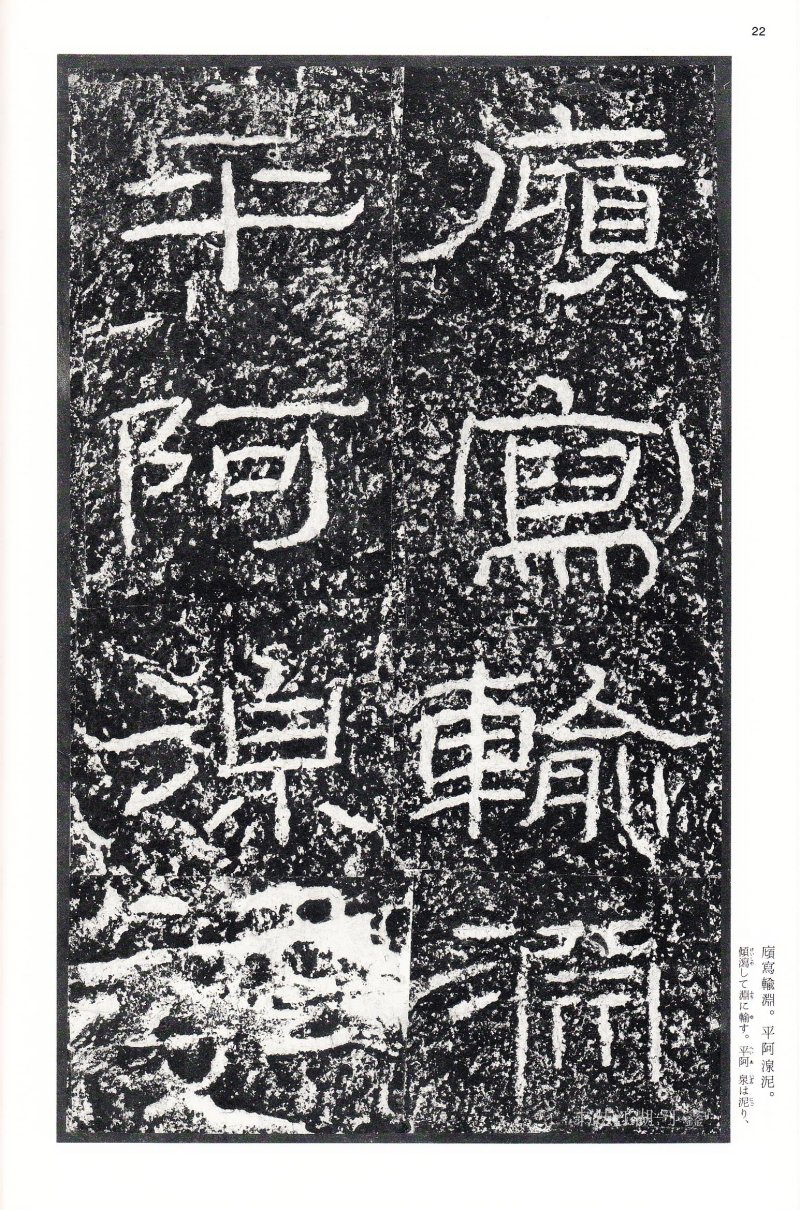 22
廎寫輸淵
平阿湶泥
廎寫輸淵。平阿湶泥。
傾瀉して淵に輸す。平阿 泉は泥り、